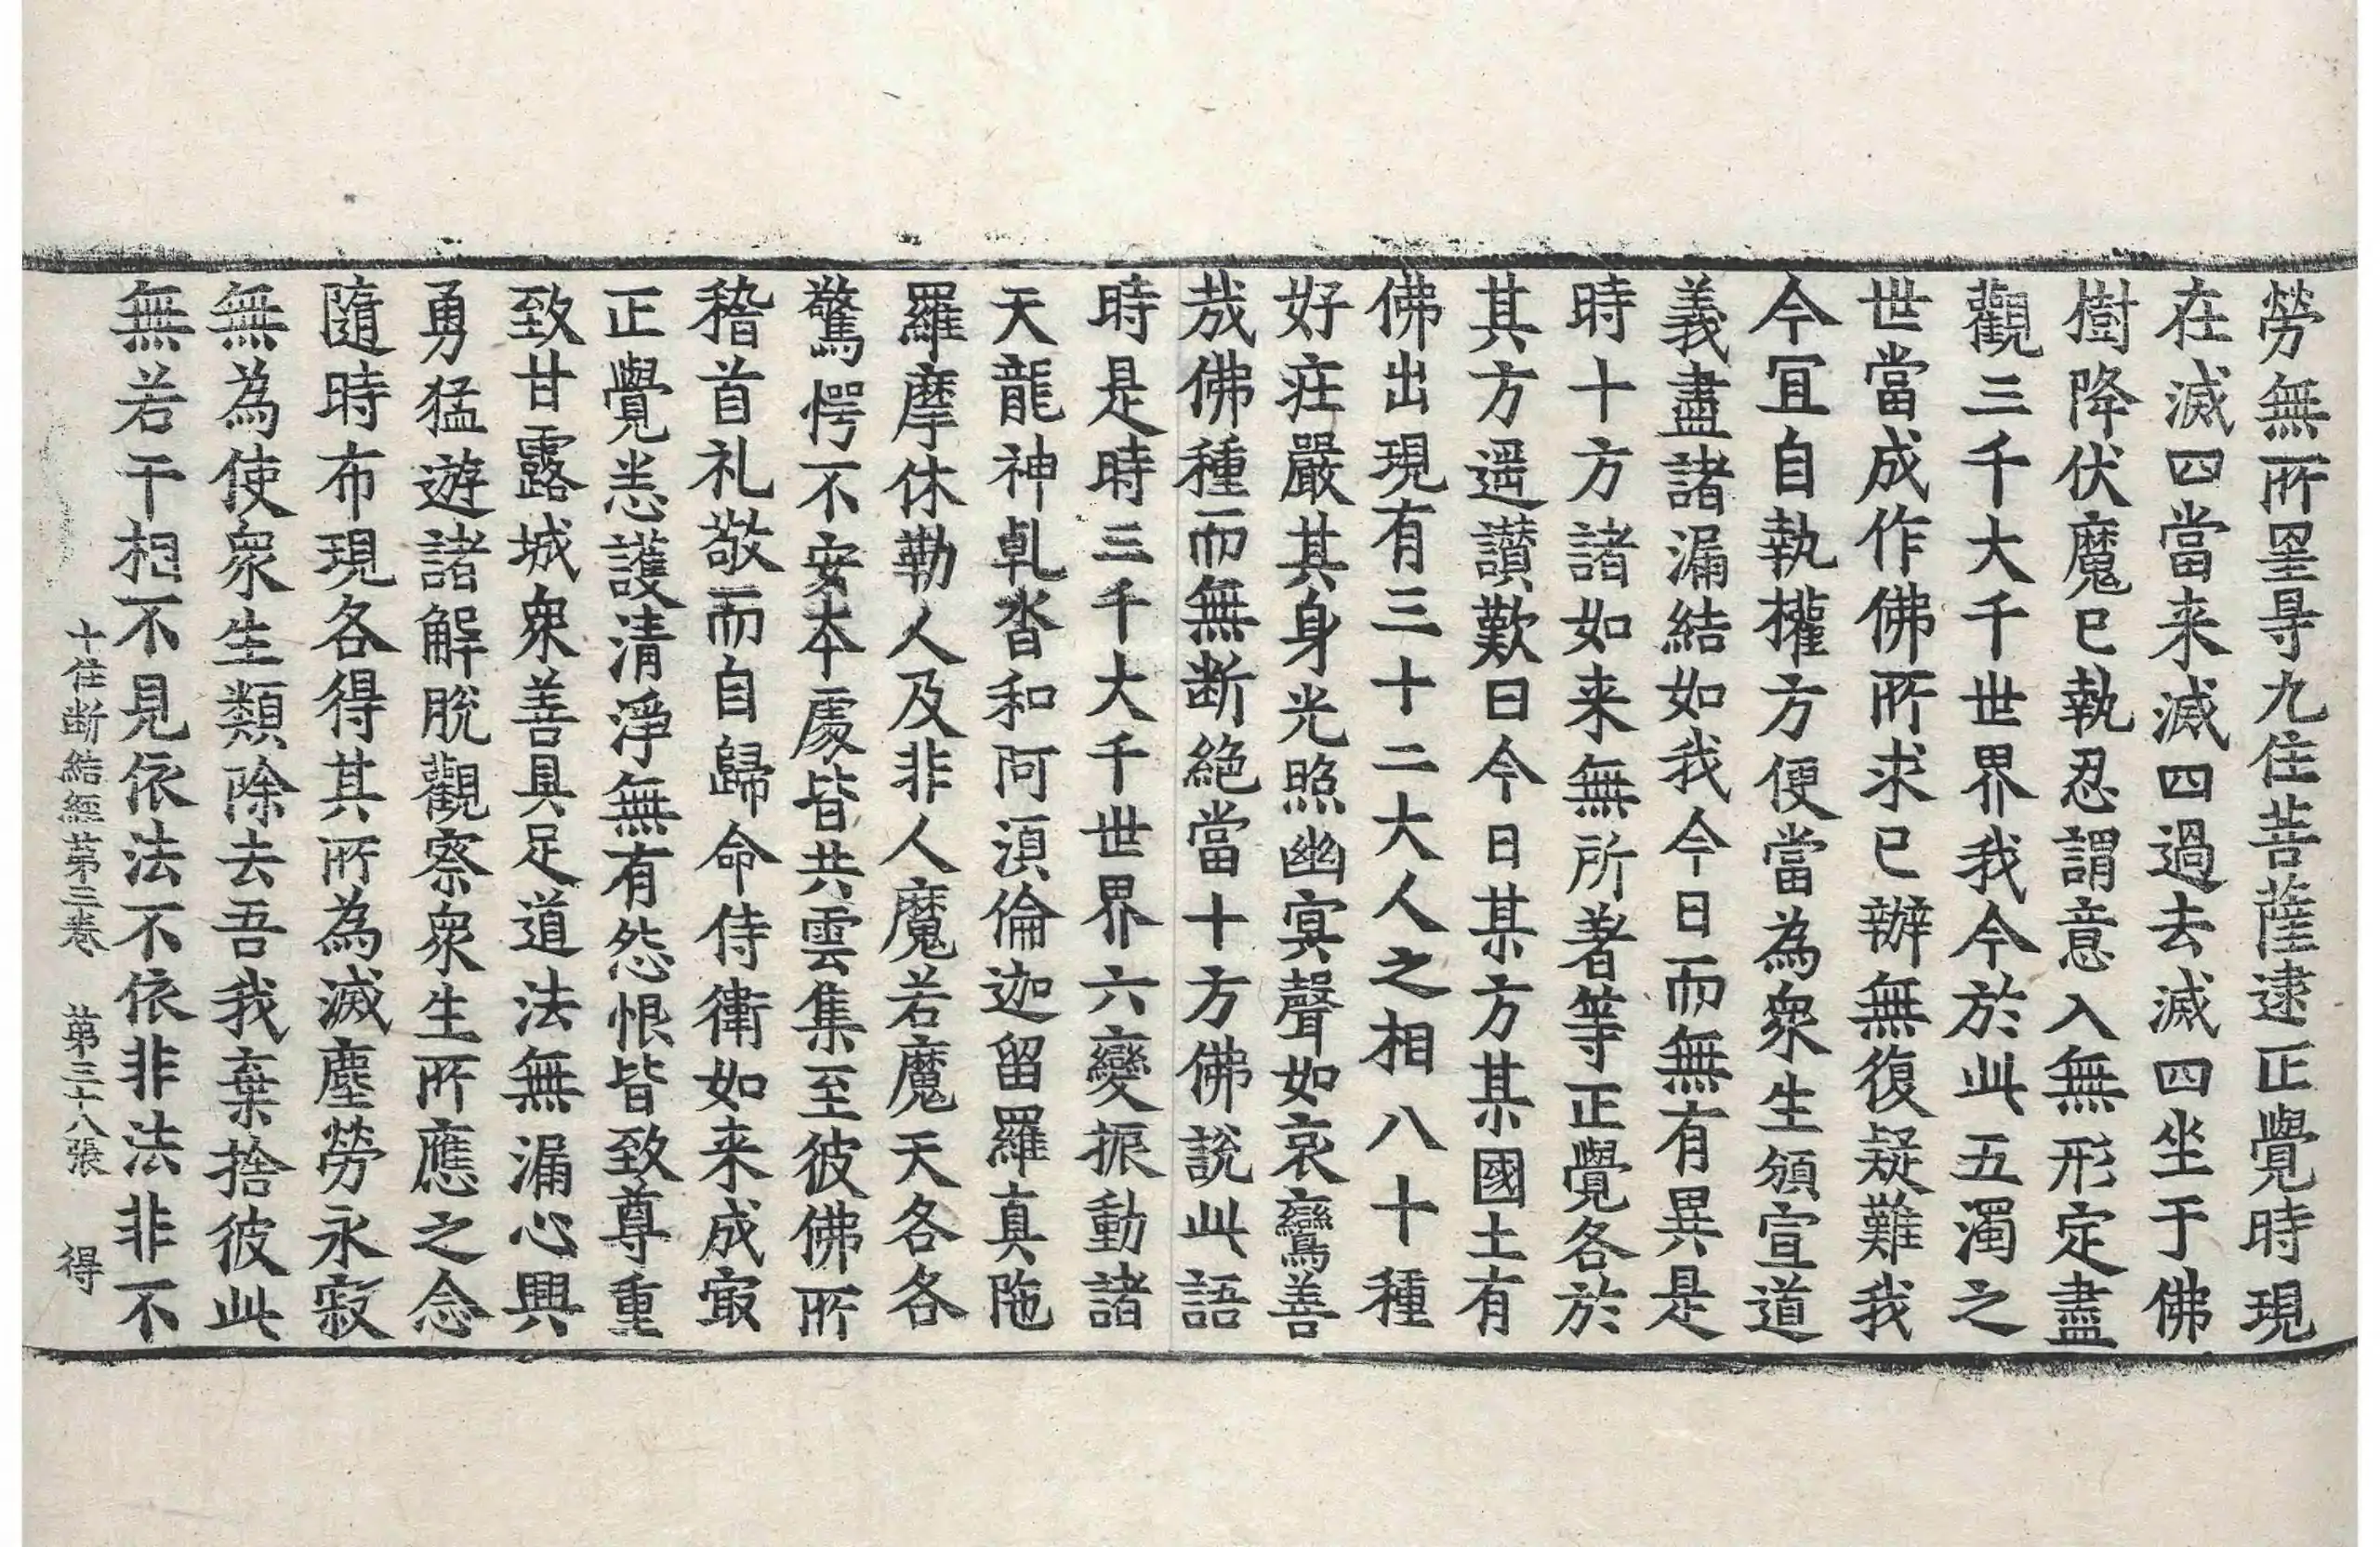 勞無所罣㝵九住菩薩逮正覺時現
在滅四當来滅四過去滅四坐于佛
樹降伏魔已執忍謂意入無形定盡
觀三千大千世界我今於此五濁之
世當成作佛所求已辦無復疑難我
今冝自執權方便當為衆生頒宣道
義盡諸漏結如我今日而無有異是
時十方諸如来無所著等正覺各於
其方遥讃歎曰今日某方某國土有
佛出現有三十二大人之相八十種
好莊嚴其身光照幽㝠聲如哀鸞善
㢤佛種而無断絶當十方佛說此語
時是時三千大千世界六變振動諸
天龍神乹沓和阿須倫迦留羅真陁
羅摩休勒人及非人魔若魔天各各
驚愕不安本處皆共雲集至彼佛所
稽首礼敬而自歸命侍衛如来成㝡
正覺悉護清淨無有怨恨皆致尊重
致甘露城衆善具足道法無漏心興
勇猛遊諸解脫觀察衆生所應之念
隨時布現各得其所為滅塵勞永寂
無為使衆生類除去吾我棄捨彼此
無若干相不見依法不依非法非不
十住断結經第三卷 第三十八張 得